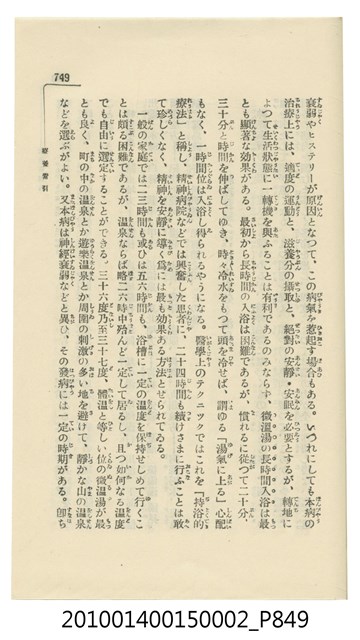 衰弱やヒステリーが原因となつて、この病氣を惹起す場合もある。いづれにしても本病の
治療上には、適度の運動と、滋養分の攝取と、絶對の安靜・安眠を必要とするが、轉地に
よつて生活狀態に一轉機を與ふることは有利であるのみならず、微溫湯の長時間入浴は最
とも顯著な効果がある。最初から長時間の入浴は困難であるが、慣れるに從つて二十分、
三十分と時間を伸ばしてゆき、時々冷水をもつて頭を冷せば、謂ゆる「湯氣に上る」心配
もなく、一時間位は入浴し得られるやうになる。醫學上のテクニックではこれを「持浴的
療法」と稱し、精神病院などでは興奮した患者に、二十四時間も續けさまに行ふことは敢
て珍しくなく、精神を安靜に導く爲には最も効果ある方法とせられてゐる。
一般の家庭では二三時間、或ひは五六時間も、浴槽に一定の溫度を保持せしめて行くこ
とは頗る困難であるが、溫泉ならば略二六時中殆んど一定して居るし、且つ如何なる溫度
でも自由に選定することができる。三十六度乃至三十七度、體溫と等しい位の微溫湯が最
とも良く、町の中の溫泉とか遊樂溫泉とか周圍の刺激の多い地を避けて、靜かな山の溫泉
などを選ぶがよい。又本病は神經衰弱などと異ひ、その發病には一定の時期がある。卽ち
療養索引
749
201001400150002_P849